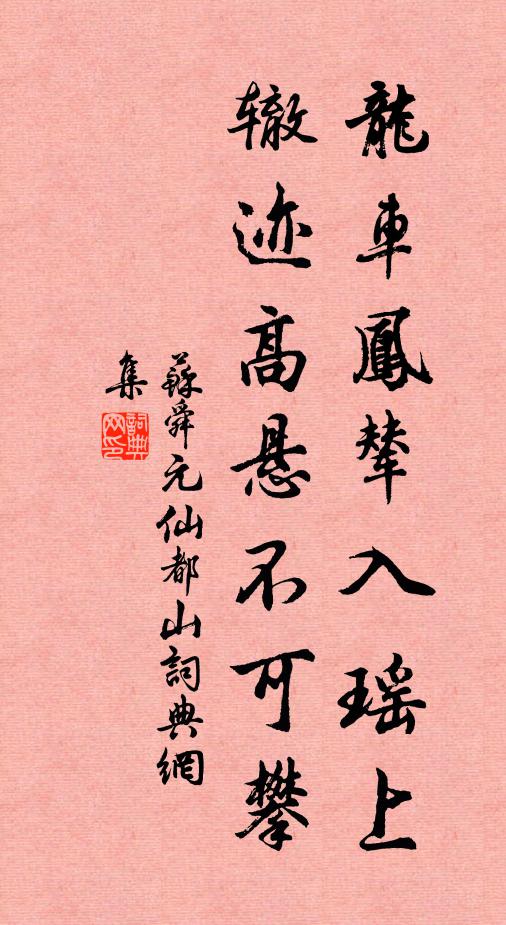 龍車鳳輦入瑶上
辙迹高悬不可攀
蘇舜元仙都山詞典網
集
詞典網印